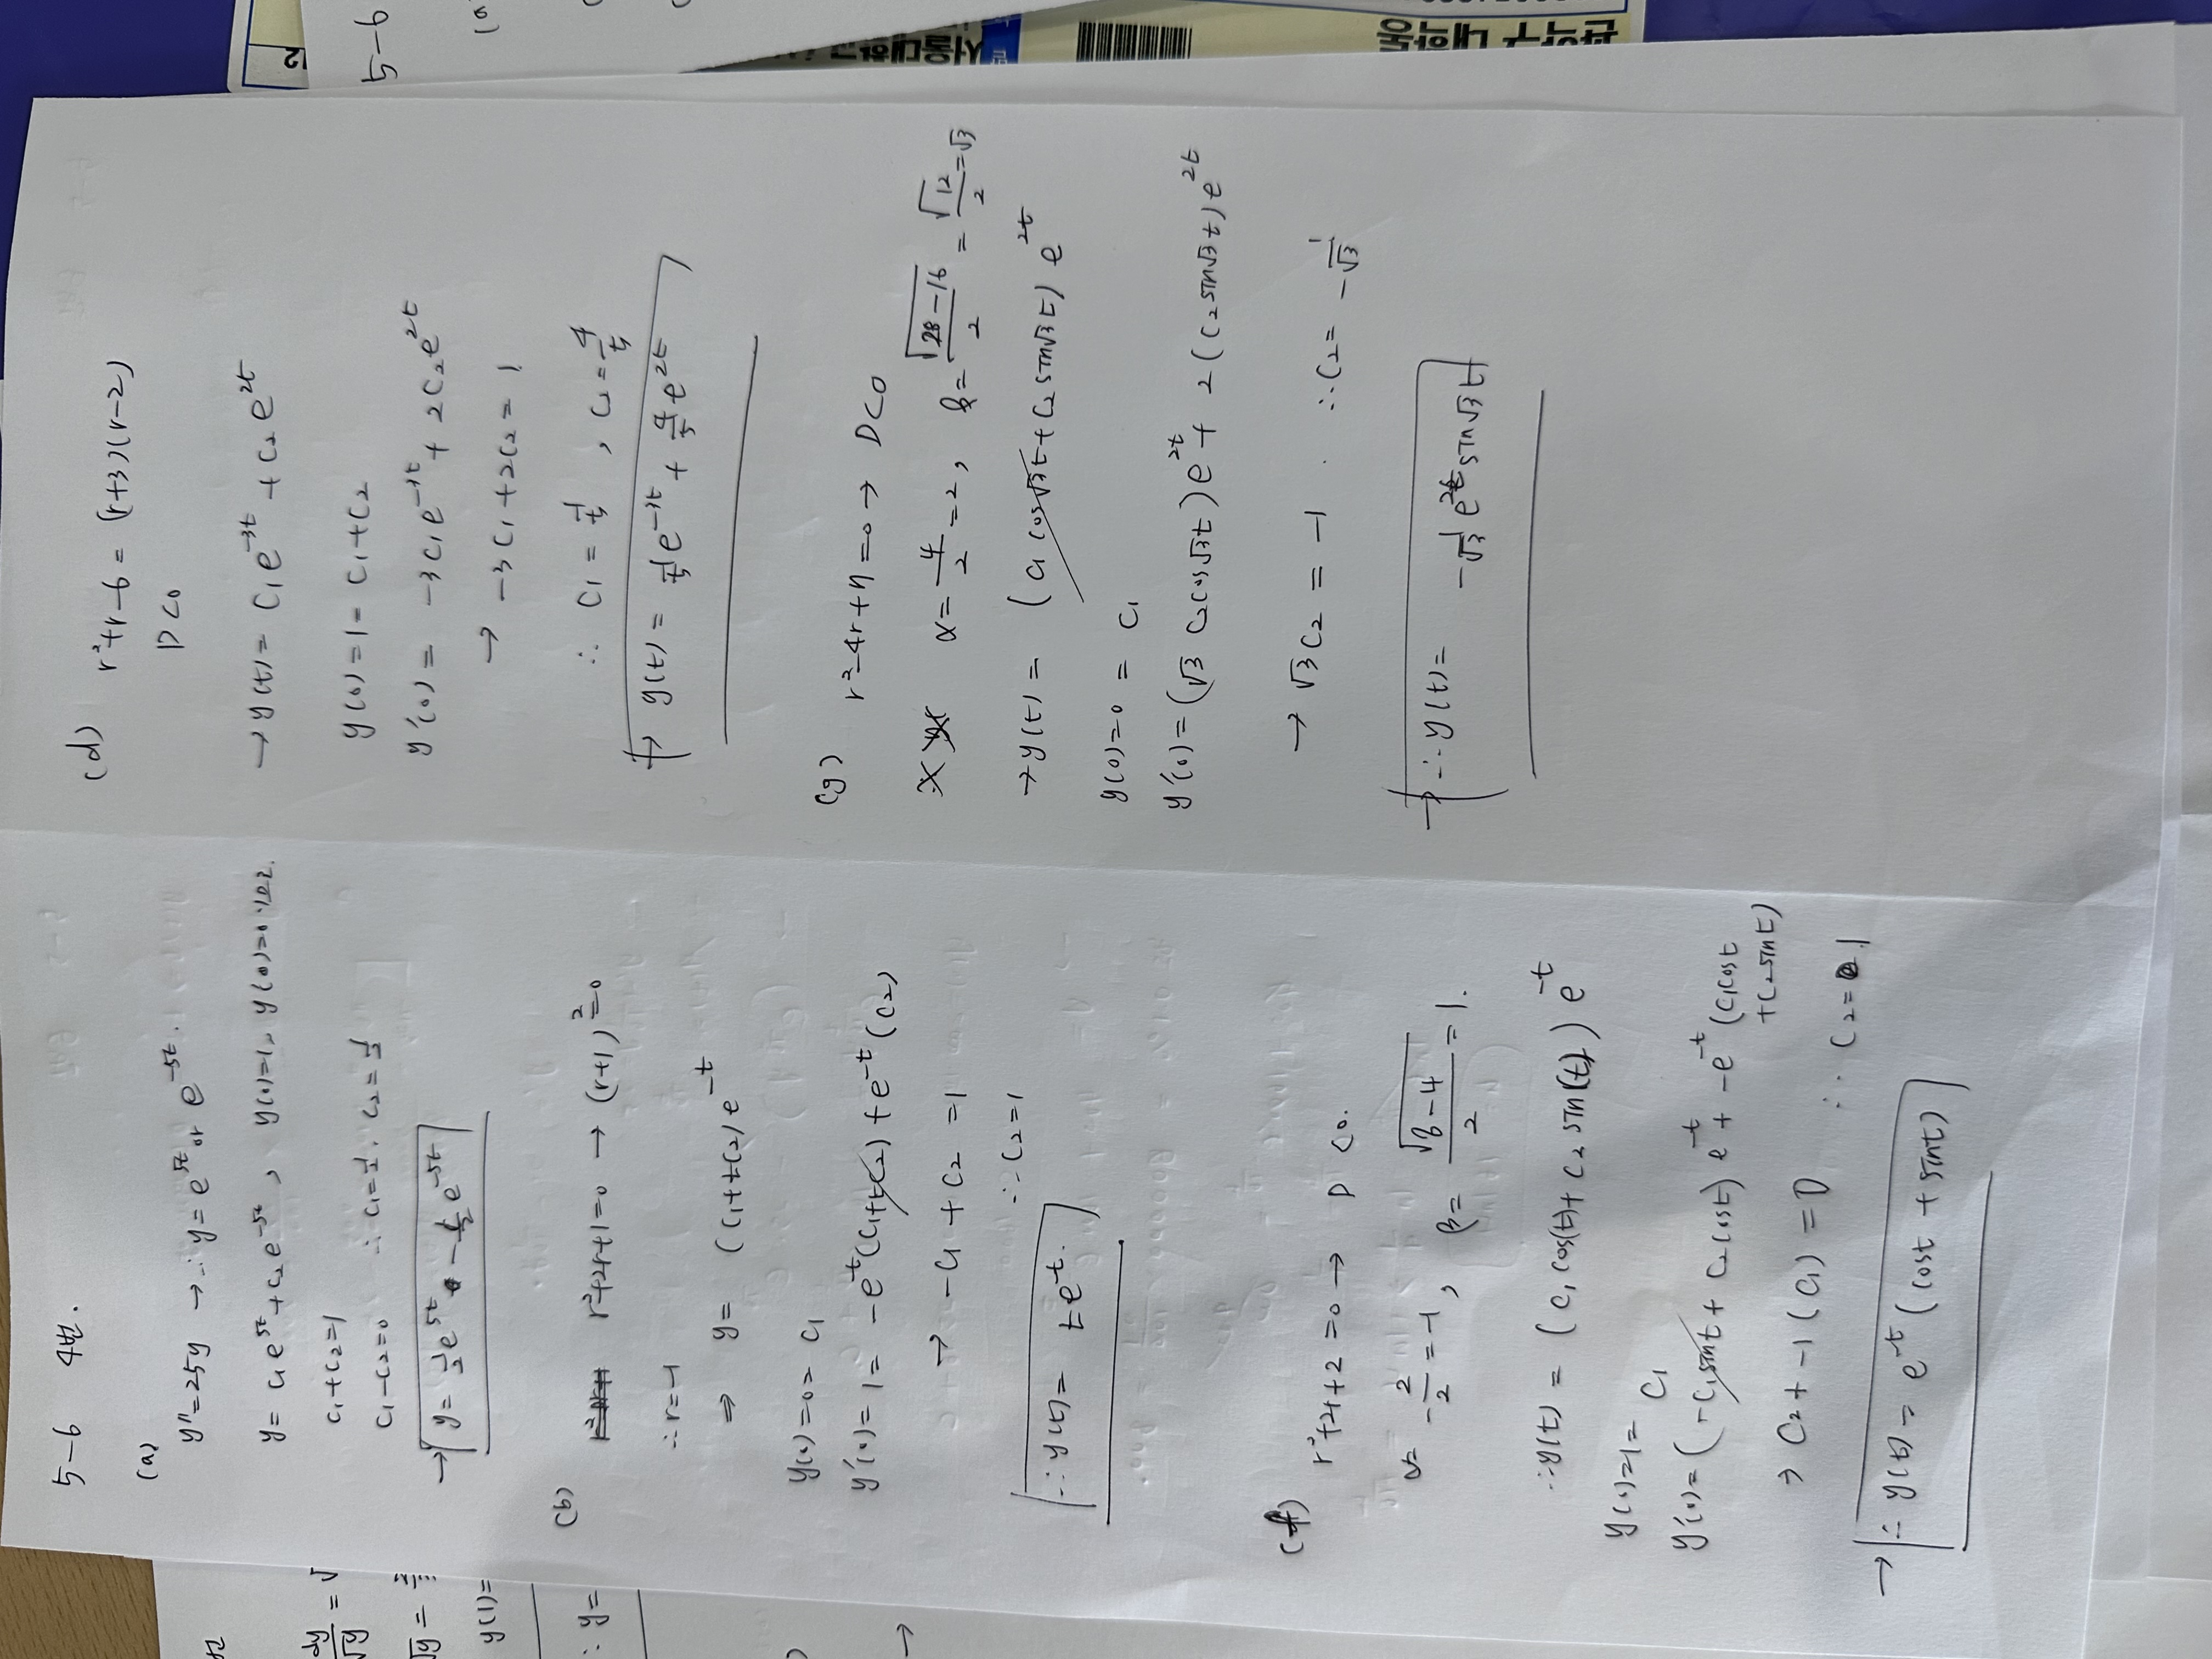 5-6 4번.
(a)
y''=25y → ∴ y = e^{5t} or e^{-5t}.
y = c₁e^{5t} + c₂e^{-5t}, y(0)=1, y'(0)=0
c₁+c₂=1
c₁-c₂=0 ∴ c₁=1/2, c₂=1/2
→ y = 1/2 e^{5t} - 1/2 e^{-5t}
(b) r²+2r+1=0 → (r+1)²=0
∴ r=-1
⇒ y = (c₁+tc₂)e^{-t}
y(0)=0=c₁
y'(0)=1= -e^{-t}(c₁+tc₂)+e^{-t}(c₂)
→ -c₁+c₂=1
∴ c₂=1
∴ y(t)= te^{-t}.
(f) r²+2r+2=0 → D<0.
α= -2/2 = -1, β= √(8-4)/2 = 1.
∴ y(t) = (c₁cos(t)+c₂sin(t))e^{-t}
y(0)=1= c₁
y'(0)= (-c₁sint + c₂cost)e^{-t} + -e^{-t}(c₁cost
+c₂sint)
→ c₂+-1(c₁)=0 ∴ c₂=1
→ ∴ y(t)= e^{-t}(cost + sint)
(d) r²+r-6 = (r+3)(r-2)
D<0
→ y(t)= c₁e^{-3t} + c₂e^{2t}
y(0)=1= c₁+c₂
y'(0)= -3c₁e^{-3t} + 2c₂e^{2t}
→ -3c₁+2c₂=1
∴ c₁=1/5, c₂=4/5
→ y(t)= 1/5 e^{-3t} + 4/5 e^{2t}
(g) r²-4r+7=0 → D<0
α= 4/2 =2, β= √(28-16)/2 = √12/2 = √3
→ y(t)= (c₁cos√3t + c₂sin√3t) e^{2t}
y(0)=0= c₁
y'(0)= (√3 c₂cos√3t)e^{2t} + 2(c₂sin√3t)e^{2t}
→ √3c₂ = -1. ∴ c₂= -1/√3
→ ∴ y(t)= -1/√3 e^{2t} sin√3t
5-6
(a)
번
dy/√y = √
√y =
y(1)=
∴ y=
→